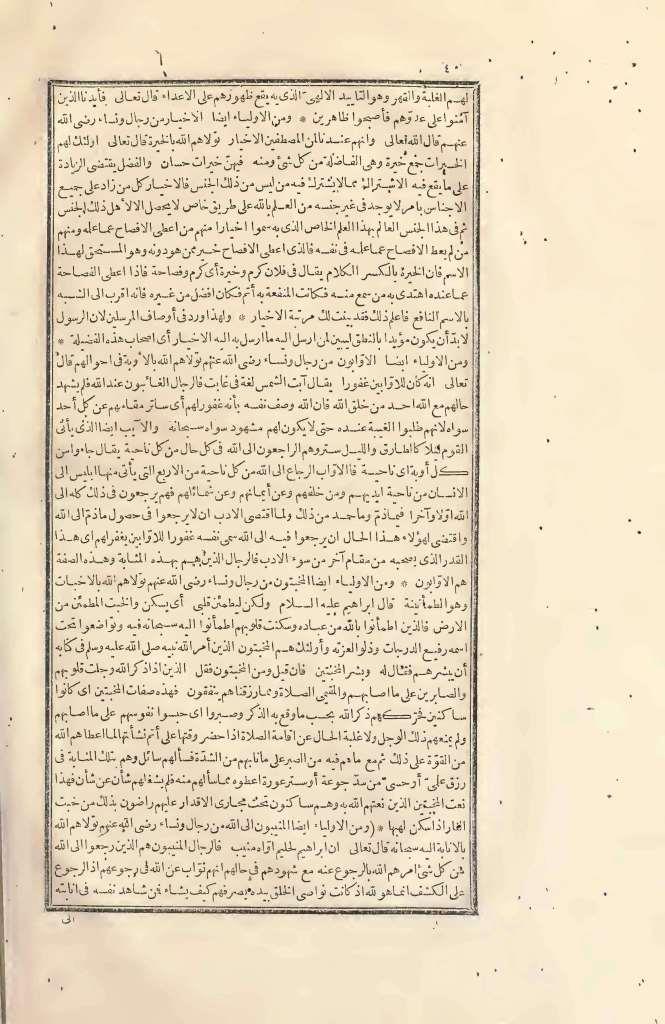 ٤٠
لهم الغلبة والقهر وهو التأييد الالهى الذى به يقع ظهورهم على الاعداء قال تعالى فأيدنا الذين
آمنوا على عدوهم فأصبحوا ظاهرين * ومن الاولياء ايضا الاخيار من رجال ونساء رضى الله
عنهم قال الله تعالى وانهم عندنا لمن المصطفين الاخيار تولاهم الله بالخيرة قال تعالى اولئك لهم
الخيرات جمع خيرة وهى الفاضلة من كل شئ ومنه فيهن خيرات حسان والفضل يقتضى الزيادة
على ما يقع فيه الاشتراك مما لا يشترك فيه من ليس من ذلك الجنس فالاخيار كل من زاد على جميع
الاجناس بأمر لا يوجد فى غير جنسه من العلم بالله على طريق خاص لا يحصل الا لاهل ذلك الجنس
ثم فى هذا الجنس العالم بهذا العلم الخاص الذى به سموا اخيارا منهم من اعطى الافصاح عما علمه ومنهم
من لم يعط الافصاح عما علمه فى نفسه فالذى اعطى الافصاح خير ممن هو دونه وهو المستحق لهذا
الاسم فان الخيرة بالكسر الكلام يقال فى فلان كرم وخيرة أى كرم وفصاحة فاذا اعطى الفصاحة
عما عنده اهتدى به من سمع منه فكانت المنفعة به أتم فكان افضل من غيره فانه اقرب الى التشبه
بالاسم النافع فاعلم ذلك فقد بينت لك مرتبة الاخيار * ولهذا ورد فى أوصاف المرسلين لان الرسول
لا بد أن يكون مؤيدا بالنطق ليبين لمن ارسل اليه ما ارسل به اليه الاخيار أى اصحاب هذه الفضيلة *
ومن الاولياء ايضا الاوابون من رجال ونساء رضى الله عنهم تولاهم الله بالاوبة فى احوالهم قال
تعالى انه كان للاوابين غفورا يقال آبت الشمس لغة فى غابت فالرجال الغائبون عند الله فلم يشهد
حالهم مع الله احد من خلق الله فان الله وصف نفسه بأنه غفور لهم أى ساتر مقامهم عن كل أحد
سواه لانهم طلبوا الغيبة عنده حتى لا يكون لهم مشهود سواه سبحانه والآيب ايضا الذى يأتى
القوم ليلا كالطارق والليل ستر وهم الراجعون الى الله فى كل حال من كل ناحية يقال جاءوا من
كل أوبة اى ناحية فالاواب الرجاع الى الله من كل ناحية من الاربع التى يأتى منها ابليس الى
الانسان من ناحية ايديهم ومن خلفهم وعن أيمانهم وعن شمائلهم فهم يرجعون فى ذلك كله الى
الله اولا وآخرا فيما ذم وما حمد من ذلك ولما اقتضى الادب ان لا يرجعوا فى حصول ما ذم الى الله
واقتضى لهؤلاء هذا الحال ان يرجعوا فيه الى الله سمى نفسه غفورا للاوابين يغفر لهم اى هذا
القدر الذى يصحبه من مقام آخر من سوء الادب فالرجال الذين هم بهذه المثابة وهذه الصفة
هم الاوابون * ومن الاولياء ايضا المخبتون من رجال ونساء رضى الله عنهم تولاهم الله بالاخبات
وهو الطمأنينة قال ابراهيم عليه السلام ولكن ليطمئن قلبى أى يسكن والخبت المطمئن من
الارض فالذين اطمأنوا بالله من عباده وسكنت قلوبهم اطمأنوا اليه سبحانه فيه وتواضعوا تحت
اسمه رفيع الدرجات وذلوا لعزته وأولئك هم المخبتون الذين أمر الله نبيه صلى الله عليه وسلم فى كتابه
أن يبشرهم فقال له وبشر المخبتين فان قيل ومن المخبتون فقل الذين اذا ذكر الله وجلت قلوبهم
والصابرين على ما اصابهم والمقيمى الصلاة ومما رزقناهم ينفقون فهذه صفات المخبتين اى كانوا
ساكنين فحركهم ذكر الله بحسب ما وقع به الذكر وصبروا اى حبسوا نفوسهم على ما اصابهم
ولم يمنعهم ذلك الوجل ولا غلبة الحال عن اقامة الصلاة اذا حضر وقتها على أتم نشأتها لما اعطاهم الله
من القوة على ذلك ثم مع ما هم فيه من الصبر على ما نابهم من الشدة فسألهم سائل وهم بتلك المثابة فى
رزق علمى أو حسى من سد جوعة أو ستر عورة اعطوه مما سألهم منه فلم يشغلهم شأن عن شأن فهذا
نعت المخبتين الذين نعتهم الله به وهم ساكنون تحت مجارى الاقدار عليهم راضون بذلك من خبت
النار اذا سكن لهبها * (ومن الاولياء ايضا المنيبون الى الله من رجال ونساء رضى الله عنهم تولاهم الله
بالانابة اليه سبحانه قال تعالى ان ابراهيم لحليم اواه منيب فالرجال المنيبون هم الذين رجعوا الى الله
من كل شئ امرهم الله بالرجوع عنه مع شهودهم فى حالهم انهم نواب عن الله فى رجوعهم اذ الرجوع
على الكشف انما هو لله اذ كانت نواصى الخلق بيده يصرفهم كيف يشاء فمن شاهد نفسه فى انابته
الى